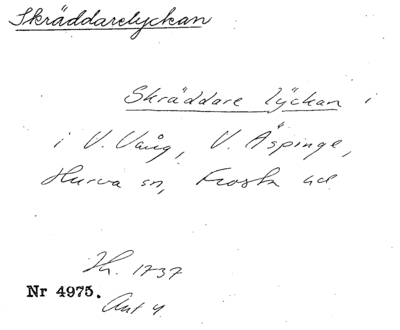 Skräddarelyckan
Skräddare lyckan i
i V. Vång, V. Äspinge,
Hurva sn, Frosta hd
Lh. 1737
Nr 4975.
Akt 4